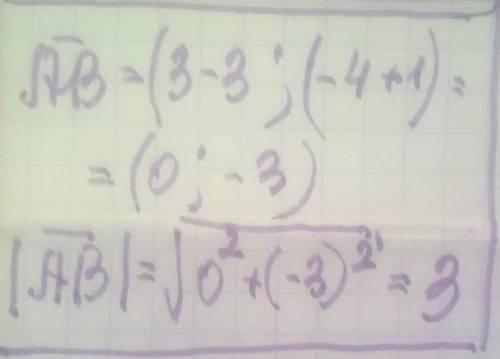 AB̅ = (3 - 3 ; (-4 + 1) =
= (0 ; -3)
|A̅B̅| = √0² + (-3)² = 3